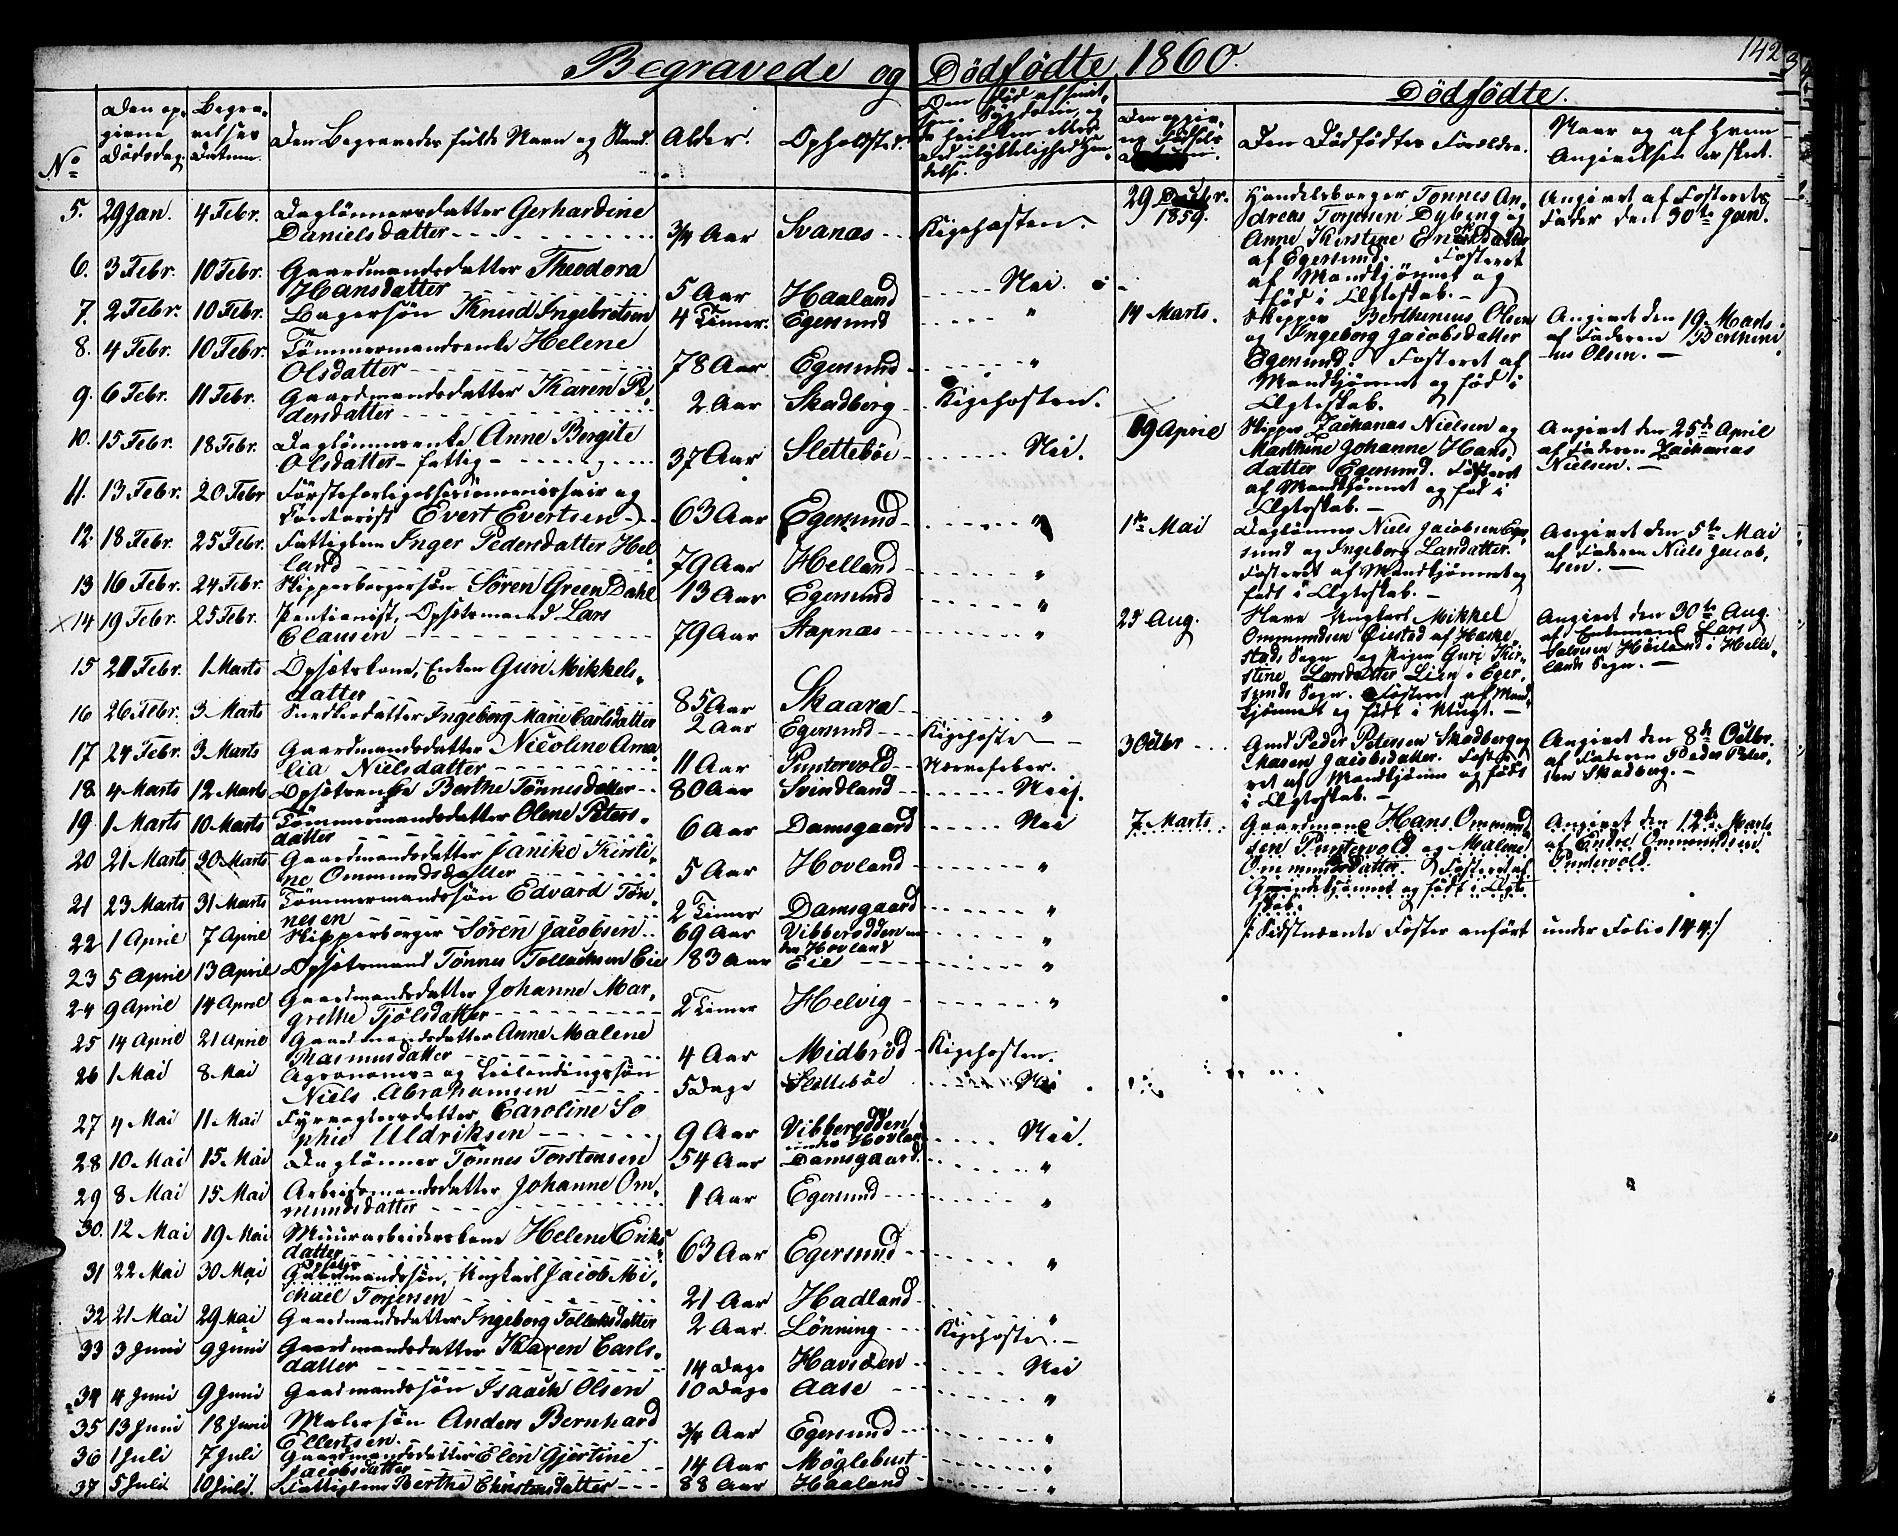 Begravede og Dödfödte 1860.
142
No
Den op-
givne
Dödsdag.
Begra-
velses
Datum.
Den Begravedes fulde Navn og Stand.
Alder.
Opholdsted.
5. 29 Jan. 4 Febr. Daglönnersdatter Gerhardine
Danielsdatter 3/4 Aar Svanæs Kigehosten.
6. 3 Febr. 10 Febr. Gaardmandsdatter Theodora
Hansdatter 5 Aar Haaland Nei.
7. 2 Febr. 10 Febr. Bagersön Knud Ingebretsen 4 Timer. Egersund "
8. 4 Febr. 10 Febr. Tömmermandsenke Helene
Olsdatter 78 Aar Egersund "
9. 6 Febr. 11 Febr. Gaardmandsdatter Karen Pe-
dersdatter 2 Aar Skadberg Kigehosten.
10. 15 Febr. 18 Febr. Daglönnerenke Anne Bergite
Olsdatter - fattig - 37 Aar Sletteböe Nei.
11. 13 Febr. 20 Febr Forligelsescommissair og
Evert Evertsen 63 Aar Egersund "
12. 18 Febr. 25 Febr. Fattiglem Inger Pedersdatter Hel-
land 79 Aar Helland "
13 16 Febr. 24 Febr. Skipperborgersön Sören Green Dahl 13 Aar Egersund "
14 19 Febr. 25 Febr. Pentionist, Opsötsmand Lars
Clausen 79 Aar Stapnæs "
15 21 Febr. 1 Marts Opsötskone, Enken Guri Mikkels-
datter 85 Aar Skaara "
16 26 Febr. 3 Marts Snedkerdatter Ingeborg Marie Carlsdatter 2 Aar Egersund Kigehoste
17 24 Febr. 3 Marts Gaardmandsdatter Nicoline Ama-
lia Nielsdatter 11 Aar Puntervold Nervefeber.
18 4 Marts 12 Marts Opsötsenke Berthe Tönnesdatter 80 Aar Svindland Neij.
19. 1 Marts 10 Marts Tömmermandsdatter Olene Peters-
datter 6 Aar Damsgaard Nei
20 21 Marts 30 Marts Gaardmandsdatter Janike Kirsti-
ne Ommundsdatter 5 Aar Hovland "
21 23 Marts 31 Marts Tömmermandssön Edvard Tön-
nesen 2 Timer Damsgaard "
22 1 April 7 April Skipperborger Sören Jacobsen 69 Aar Vibberodden
Hovland "
23 5 April 13 April Opsötsmand Tönnes Tollachsen Eie 83 Aar Eie "
24 9 April 14 April Gaardmandsdatter Johanne Mar-
grethe Tjölsdatter 2 Timer Helvig "
25 14 April 21 April Gaardmandsdatter Anne Malene
Rasmusdatter 4 Aar Midbröd Kigehosten.
26 1 Mai 8 Mai Agronoms- og Leilændingssön
Niels Abrahamsen 5 Dage Sletteböe Nei
27 4 Mai 11 Mai Fyrvogtersdatter Caroline So
phie Uldriksen 9 Aar Vibberodden
under Hovland Nei.
28 10 Mai 15 Mai Daglönner Tönnes Torstensen 54 Aar Damsgaard "
29 8 Mai 15 Mai Arbeidsmandsdatter Johanne Om-
mundsdatter 1 Aar Egersund "
30. 12 Mai 19 Mai Muurarbeiderskone Helene Eriks-
datter 63 Aar Egersund "
31 22 Mai 30 Mai Gaardmandssön, Ungkarl Jacob Mi-
chael Torjersen 21 Aar Hadland "
32 21 Mai 29 Mai Gaardmandsdatter Ingeborg Tollaksdatter 2 Aar Lönning Kigehoste
33 3 Juni 9 Juni Gaardmandsdatter Karen Carls-
datter 14 Dage Havsöen Nei
34 4 Juni 9 Juni Gaardmandssön Isaach Olsen 10 Dage Aase "
35 13 Juni 18 Juni Malersön Anders Bernhard
Ellertsen 3/4 Aar Egersund "
36 1 Juli 7 Juli Gaardmandsdatter Elen Gjertine
Jacobsdatter 14 Aar Möglebust "
37 5 Juli 10 Juli Fattiglem Berthe Christensdatter 88 Aar Haaland "
Dödfödte.
Den opgiv-
ne Födsels
Den Dödfödtes Forældre.
Naar og af Hvem
Angivelsen er skeet.
29 Decbr.
1859.
Handelsborger Tönnes An-
dreas Torjesen Dybing og
Anne Kirstine Eriksdatter
af Egersund. Fosteret
af Mandkjönnet og
föd i Ægteskab.
Angivet af Fosterets
Fader den 30te Jan.
14 Marts.
Skipper Berthinius Olsen
og Ingeborg Jacobsdatter
Egersund. Fosteret af
Mandkjönnet og föd i
Ægteskab.
Angivet den 19 Marts
af Faderen Berthini
us Olsen.
19 April
Skipper Zacharias Nielsen og
Marthine Johanne Hans-
datter Egersund. Fosteret
af Mandkjönnet og föd i
Ægteskab.
Angivet den 25de April
af Faderen Zacharias
Nielsen.
1te Mai
Daglönner Niels Jacobsen Eger-
sund og Ingeborg Larsdatter.
Fosteret af Mandkjönnet og
födt i Ægteskab.
Angivet den 5te Mai
af Faderen Niels Jacob-
sen.
25 Aug.
Ungkarl Mikkel
Ommundsen Öiestad af Haske-
stads Sogn og Pigen Guri Kir-
stine Larsdatter Lien i Eger-
sunds Sogn. Fosteret af Mand-
kjönnet og födt i Uægt.
Angivet den 30te Aug.
af Lars
Salvesen Höiland i Helle-
lands Sogn.
3 Octbr
Gmd Peder Petersen Skadberg og
Maren Jacobsdatter. Foste-
ret af Mandkjönn og födt
i Ægteskab.
Angivet den 8de Octbr.
af Faderen Peder Peter-
sen Skadberg.
7 Marts.
Gaardmand Hans Ommund
sen Puntervold og Malene
Ommundsdatter. Fosteret af
Qvindekjönnet og födt i Ægte
skab.
Angivet den 12te Marts
af Endre Ommundsen
Puntervold.
/: Sidstnævnte Foster anfört under Folio 144:/